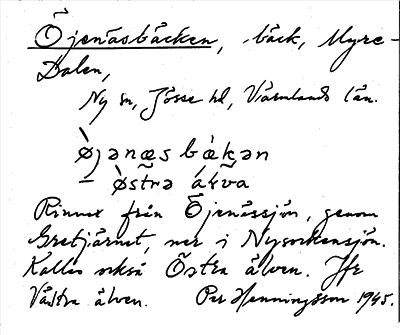 Öjenäsbäcken, bäck, Myre-
Dalen,
Ny sn, Jösse hd, Värmlands län.
öjənæs bækən
– östrə älva
Rinner från Öjenässjön, genom
Gretjärnet, ner i Nysockensjön.
Kallas också Östra älven. Jfr
Västra älven. Per Henningsson 1945.